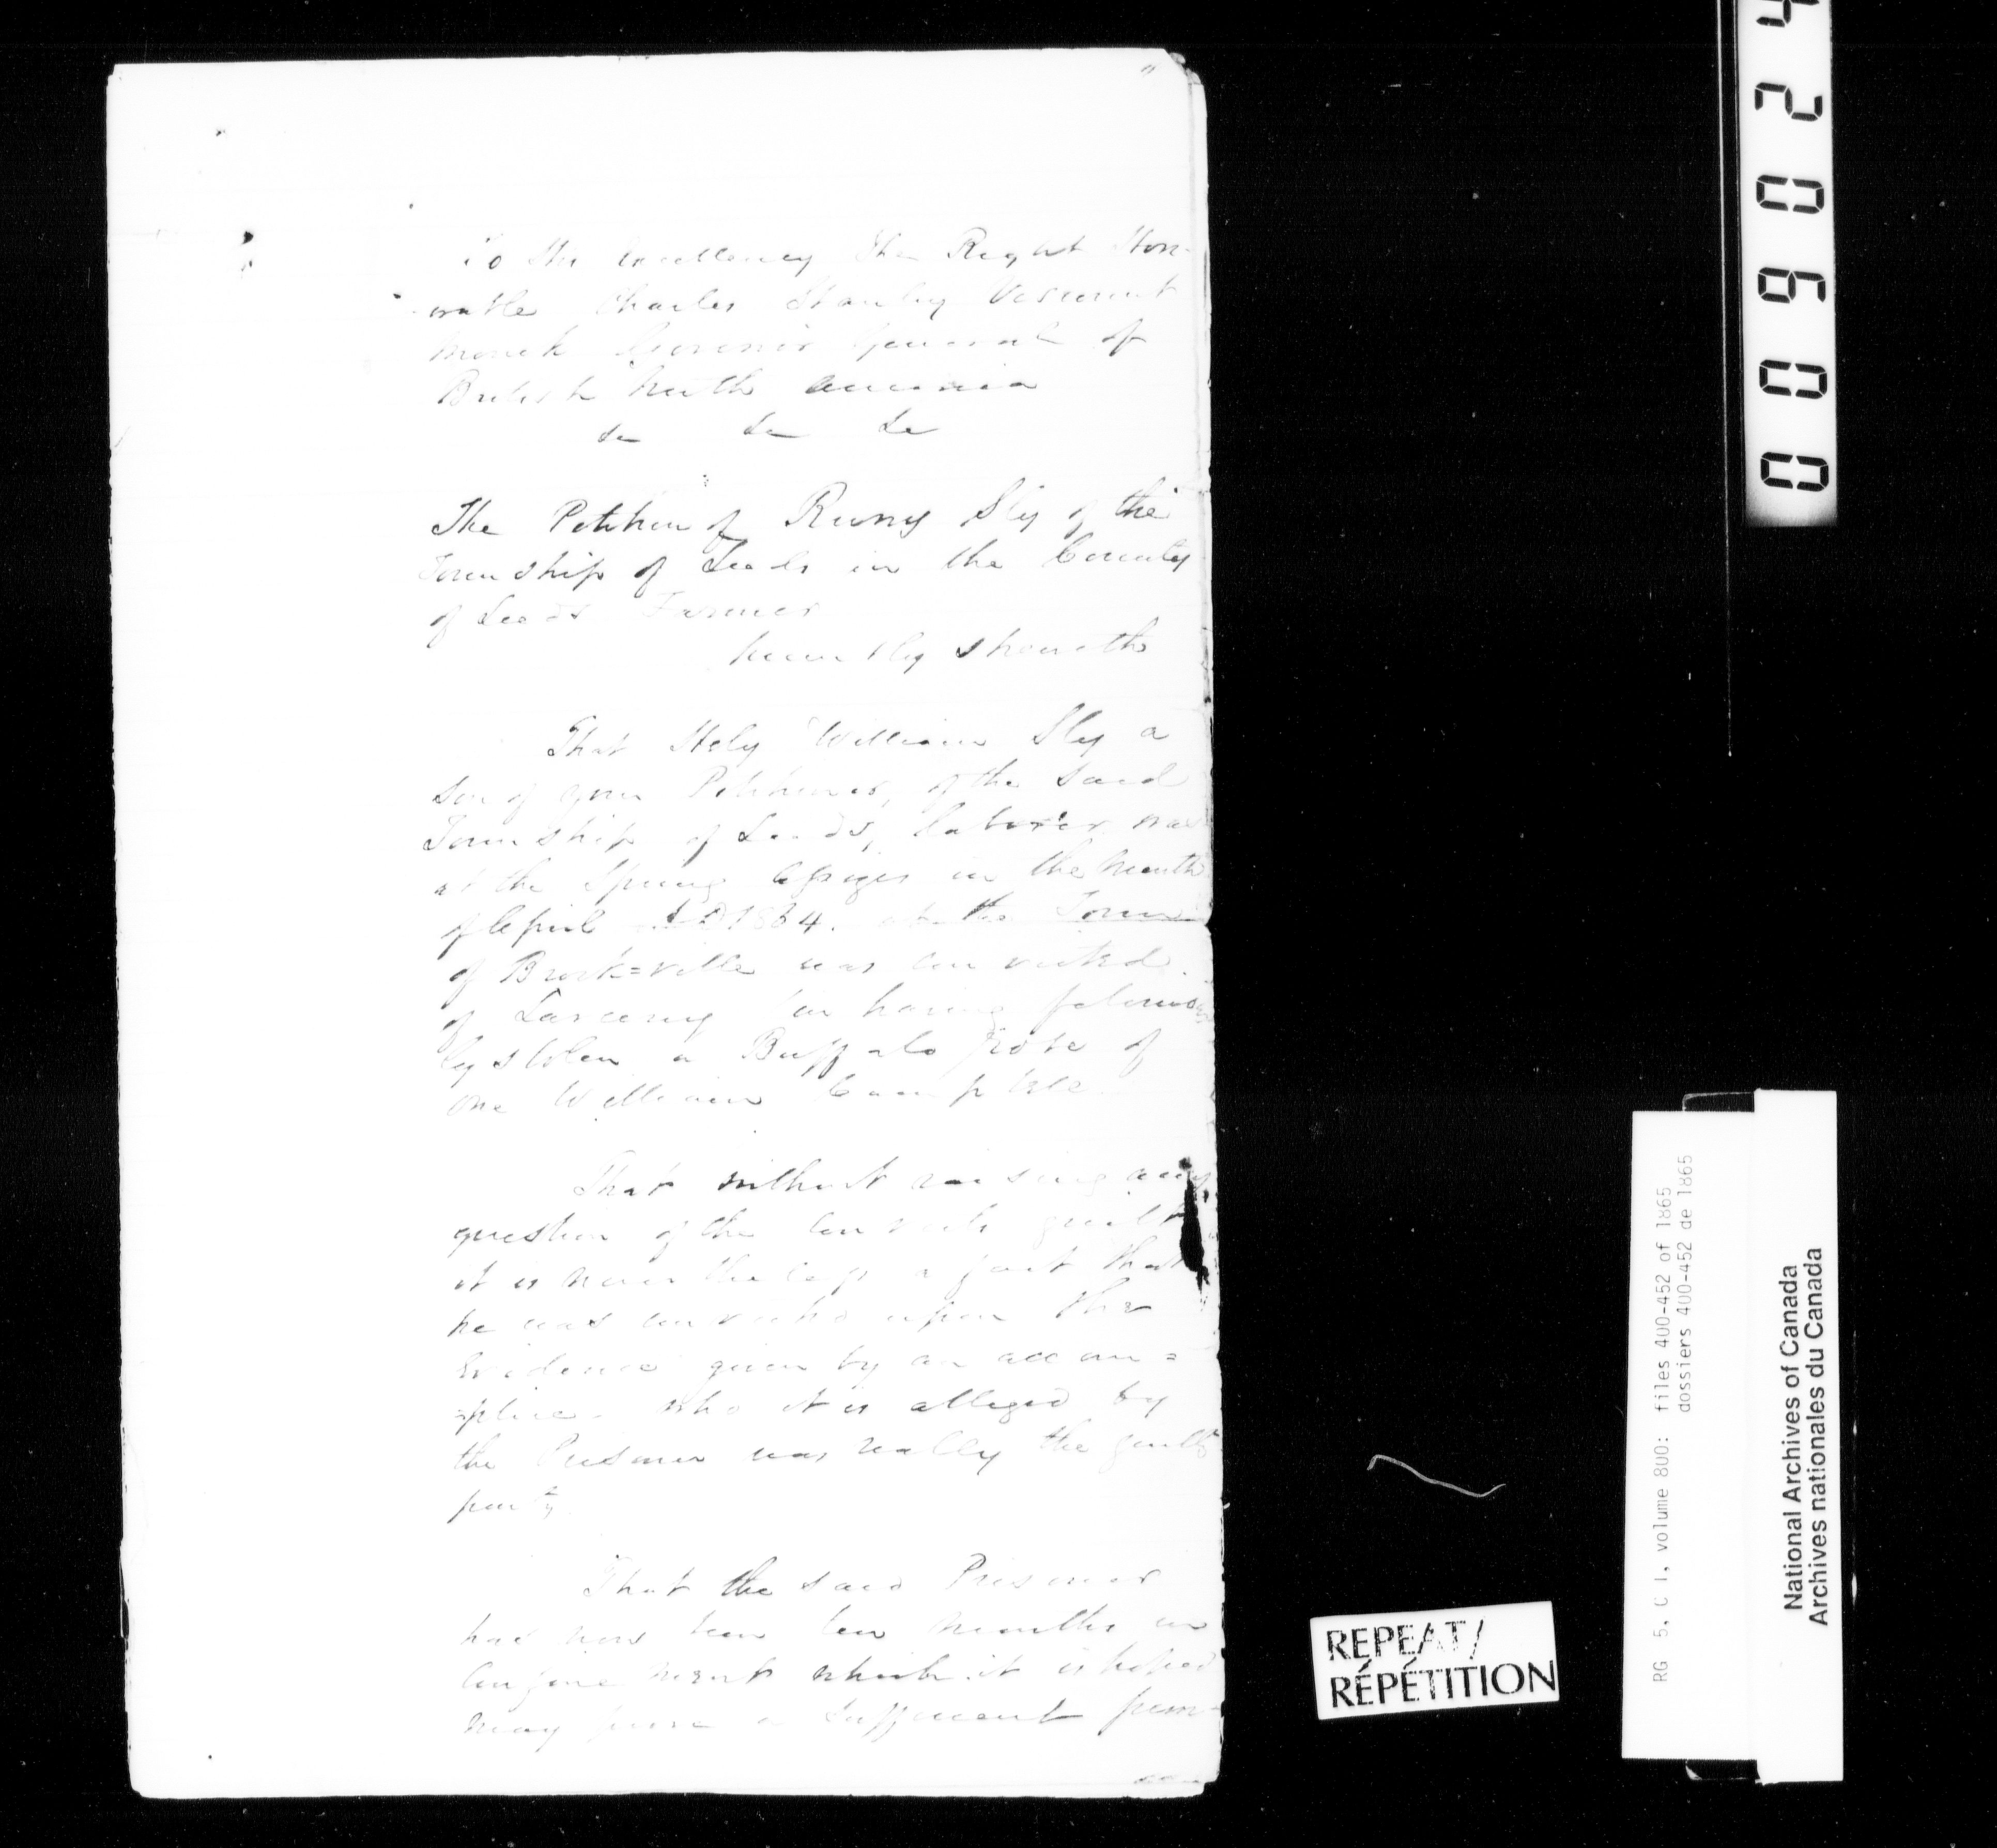 To His Excellency The Right Hon-
orable Charles Stanley Viscount
Monck Governor General of
British North America
&c &c &c
The Petition of Sly of the
Township of Leeds in the County
of Leeds Farmer
humbly sheweth
That William Sly a
son of your Petitioner, of the said
Township of Leeds, laborer was
at the Spring Assizes in the month
of April A D 1864. at the Town
of Brock=ville was convicted
of Larceny for having felonious
ly stolen a Buffalo robe of
one William Campbell
That without raising any
question of the convicts guilt
it is nevertheless a fact that
he was convicted upon the
Evidence given by an accom=
=plice who it is alleged by
the Prisoner was really the guilty
party
That the said Prisoner
has now been ten months in
confinement which it is hoped
may prove a sufficient
0009024
RG 5, C 1, volume 800: files 400-452 of 1865
dossiers 400-452 de 1865
National Archives of Canada
Archives nationales du Canada
REPEAT/
RÉPÉTITION